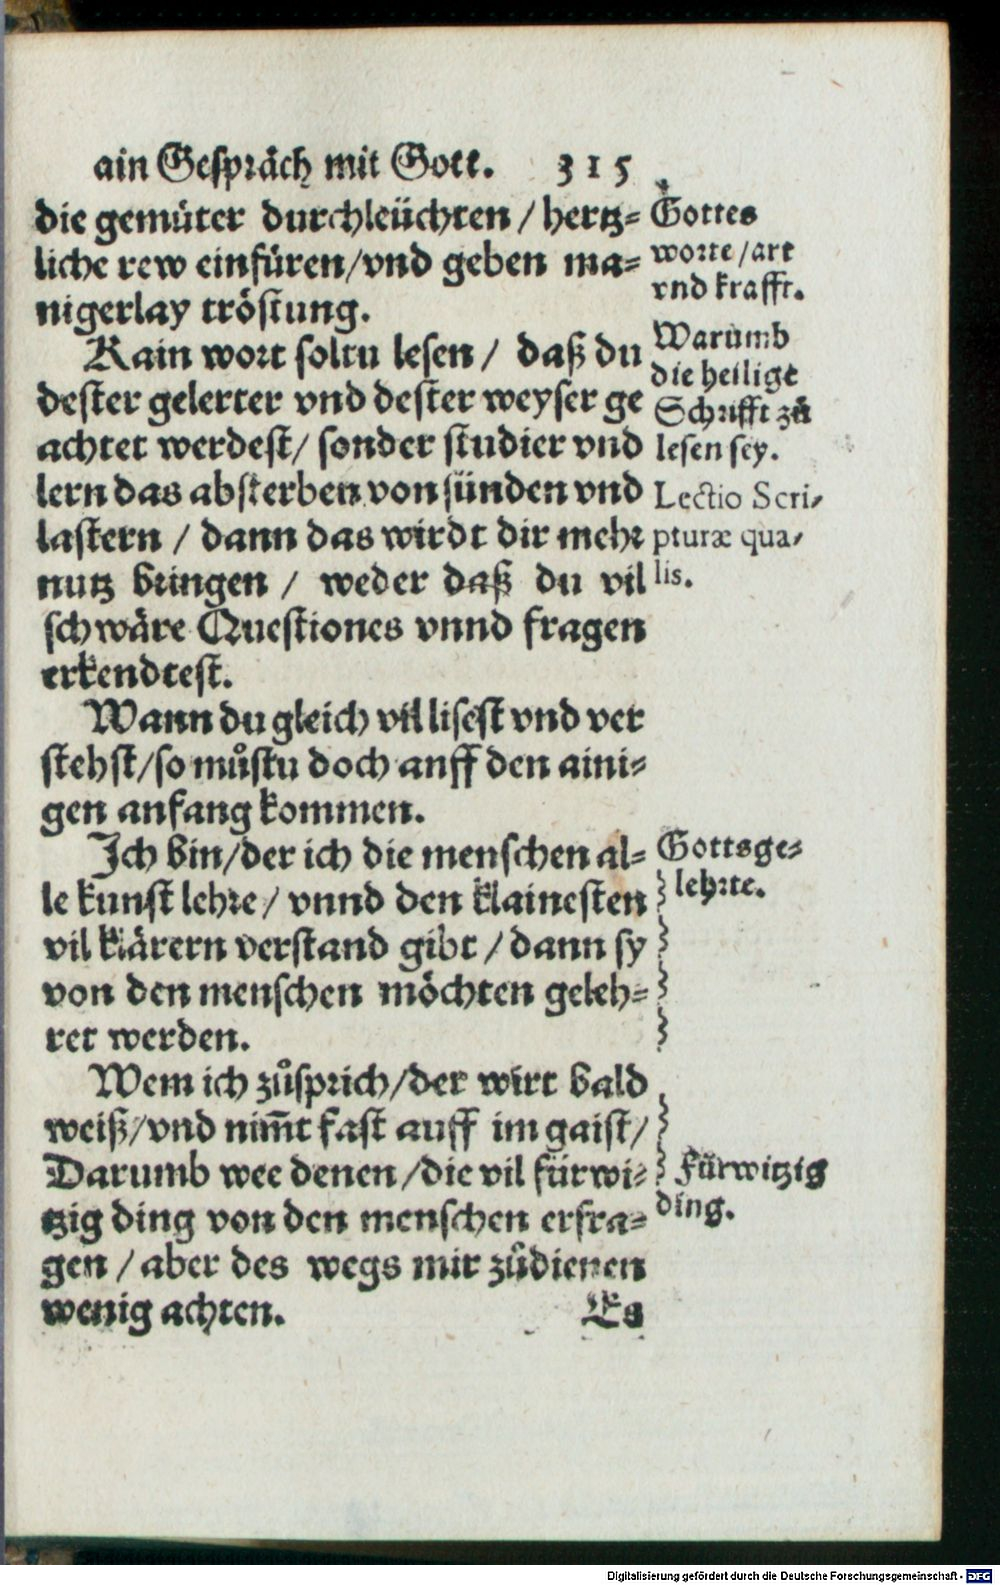 ain Gespräch mit Gott. 315
die gemüter durchleüchten / hertz=
liche rew einfüren/vnd geben ma=
nigerlay tröstung.
Kain wort soltu lesen / daß du
dester gelerter vnd dester weyser ge
achtet werdest/ sonder studier vnd
lern das absterben von sünden vnd
lastern / dann das wirdt dir mehr
nutz bringen / weder daß du vil
schwäre Questiones vnnd fragen
erkendtest.
Wann du gleich vil lisest vnd ver
stehst/so můstu doch auff den aini=
gen anfang kommen.
Ich bin/der ich die menschen al=
le kunst lehre/ vnnd den klainesten
vil klärern verstand gibt / dann sy
von den menschen möchten geleh=
ret werden.
Wem ich zůsprich/der wirt bald
weiß/vnd nim̄t fast auff im gaist/
Darumb wee denen/die vil fürwi=
tzig ding von den menschen erfra=
gen / aber des wegs mir zůdienen
wenig achten.
Es
Gottes
worte/art
vnd krafft.
Warumb
die heilige
Schrifft zů
lesen sey.
Lectio Scri-
pturæ qua-
lis.
Gottsge=
lehrte.
Fürwitzig
ding.
Digitalisierung gefördert durch die Deutsche Forschungsgemeinschaft - DFG